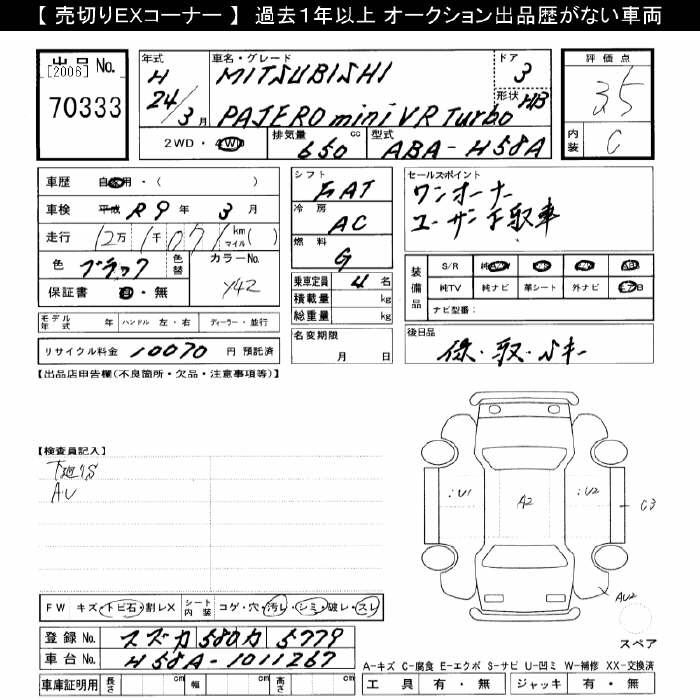 【 売切りEXコーナー 】 過去1年以上 オークション出品歴がない車両
出品 No.
[2006]
70333
年式
H
24/3月
車名・グレード
MITSUBISHI
PAJERO mini VR Turbo
ドア
3
形状 HB
評価点
3.5
内装
C
2WD・4WD
排気量
cc
650
型式
ABA-H58A
車歴 自家用・( )
車検 平成 R9年 3月
走行 12万1千071 km マイル( )
色 ブラック 色替
カラーNo.
Y42
保証書 有・無
モデル年式 年 ハンドル 左・右 ディーラー・並行
リサイクル料金 10070 円 預託済
シフト
FAT
冷房
AC
燃料
G
乗車定員 4 名
積載量 kg
総重量 kg
名変期限
月 日
セールスポイント
ワンオーナー
ユーザー下取車
装備品
S/R
純TV 純ナビ 革シート 外ナビ
ナビ型番:
後日品
保・取・Sキー
【出品店申告欄(不良箇所・欠品・注意事項等)】
【検査員記入】
下廻りS
AU
U1
A2
U2
C3
AU2
スペア
FW キズ・トビ石・割レX
シート内装
コゲ・穴・汚レ・シミ・破レ・スレ
登録 No. スズカ 580カ 5779
車台 No. H58A-1011267
車庫証明用 長さ cm 幅 cm 高さ cm
A-キズ C-腐食 E-エクボ S-サビ U-凹ミ W-補修 XX-交換済
工具 有・無 ジャッキ 有・無